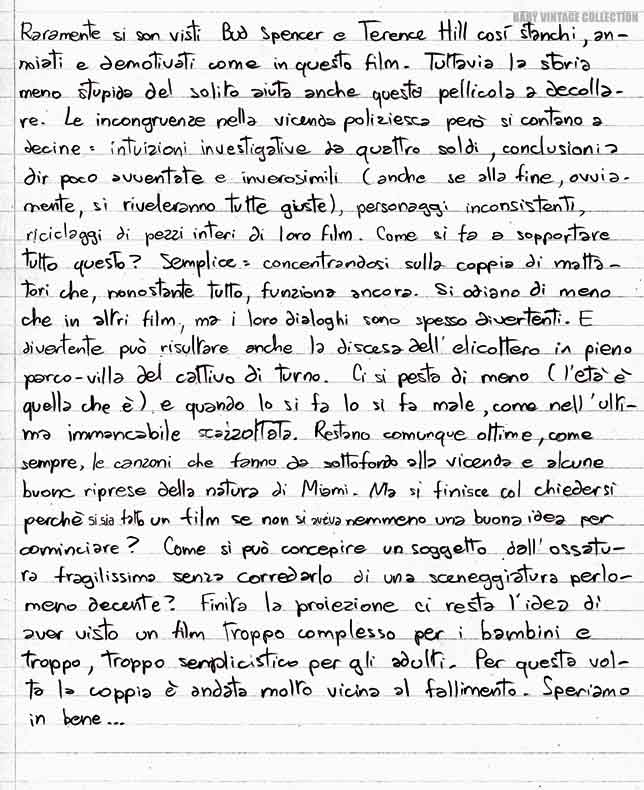 BABY VINTAGE COLLECTION
Raramente si son visti Bud Spencer e Terence Hill così stanchi, an-
noiati e demotivati come in questo film. Tuttavia la storia
meno stupida del solito aiuta anche questa pellicola a decolla-
re. Le incongruenze nella vicenda poliziesca però si contano a
decine: intuizioni investigative da quattro soldi, conclusioni a
dir poco avventate e inverosimili (anche se alla fine, ovvia-
mente, si riveleranno tutte giuste), personaggi inconsistenti,
riciclaggi di pezzi interi di loro film. Come si fa a sopportare
tutto questo? Semplice: concentrandosi sulla coppia di matta-
tori che, nonostante tutto, funziona ancora. Si odiano di meno
che in altri film, ma i loro dialoghi sono spesso divertenti. E
divertente può risultare anche la discesa dell'elicottero in pieno
parco-villa del cattivo di turno. Ci si pesta di meno (l'età è
quella che è) e quando lo si fa lo si fa male, come nell'ulti-
ma immancabile scazzottata. Restano comunque ottime, come
sempre, le canzoni che fanno da sottofondo alla vicenda e alcune
buone riprese della natura di Miami. Ma si finisce col chiedersi
perchè si sia fatto un film se non si aveva nemmeno una buona idea per
cominciare? Come si può concepire un soggetto dall'ossatu-
ra fragilissima senza corredarlo di una sceneggiatura perlo-
meno decente? Finita la proiezione ci resta l'idea di
aver visto un film troppo complesso per i bambini e
troppo, troppo semplicistico per gli adulti. Per questa vol-
ta la coppia è andata molto vicina al fallimento. Speriamo
in bene...